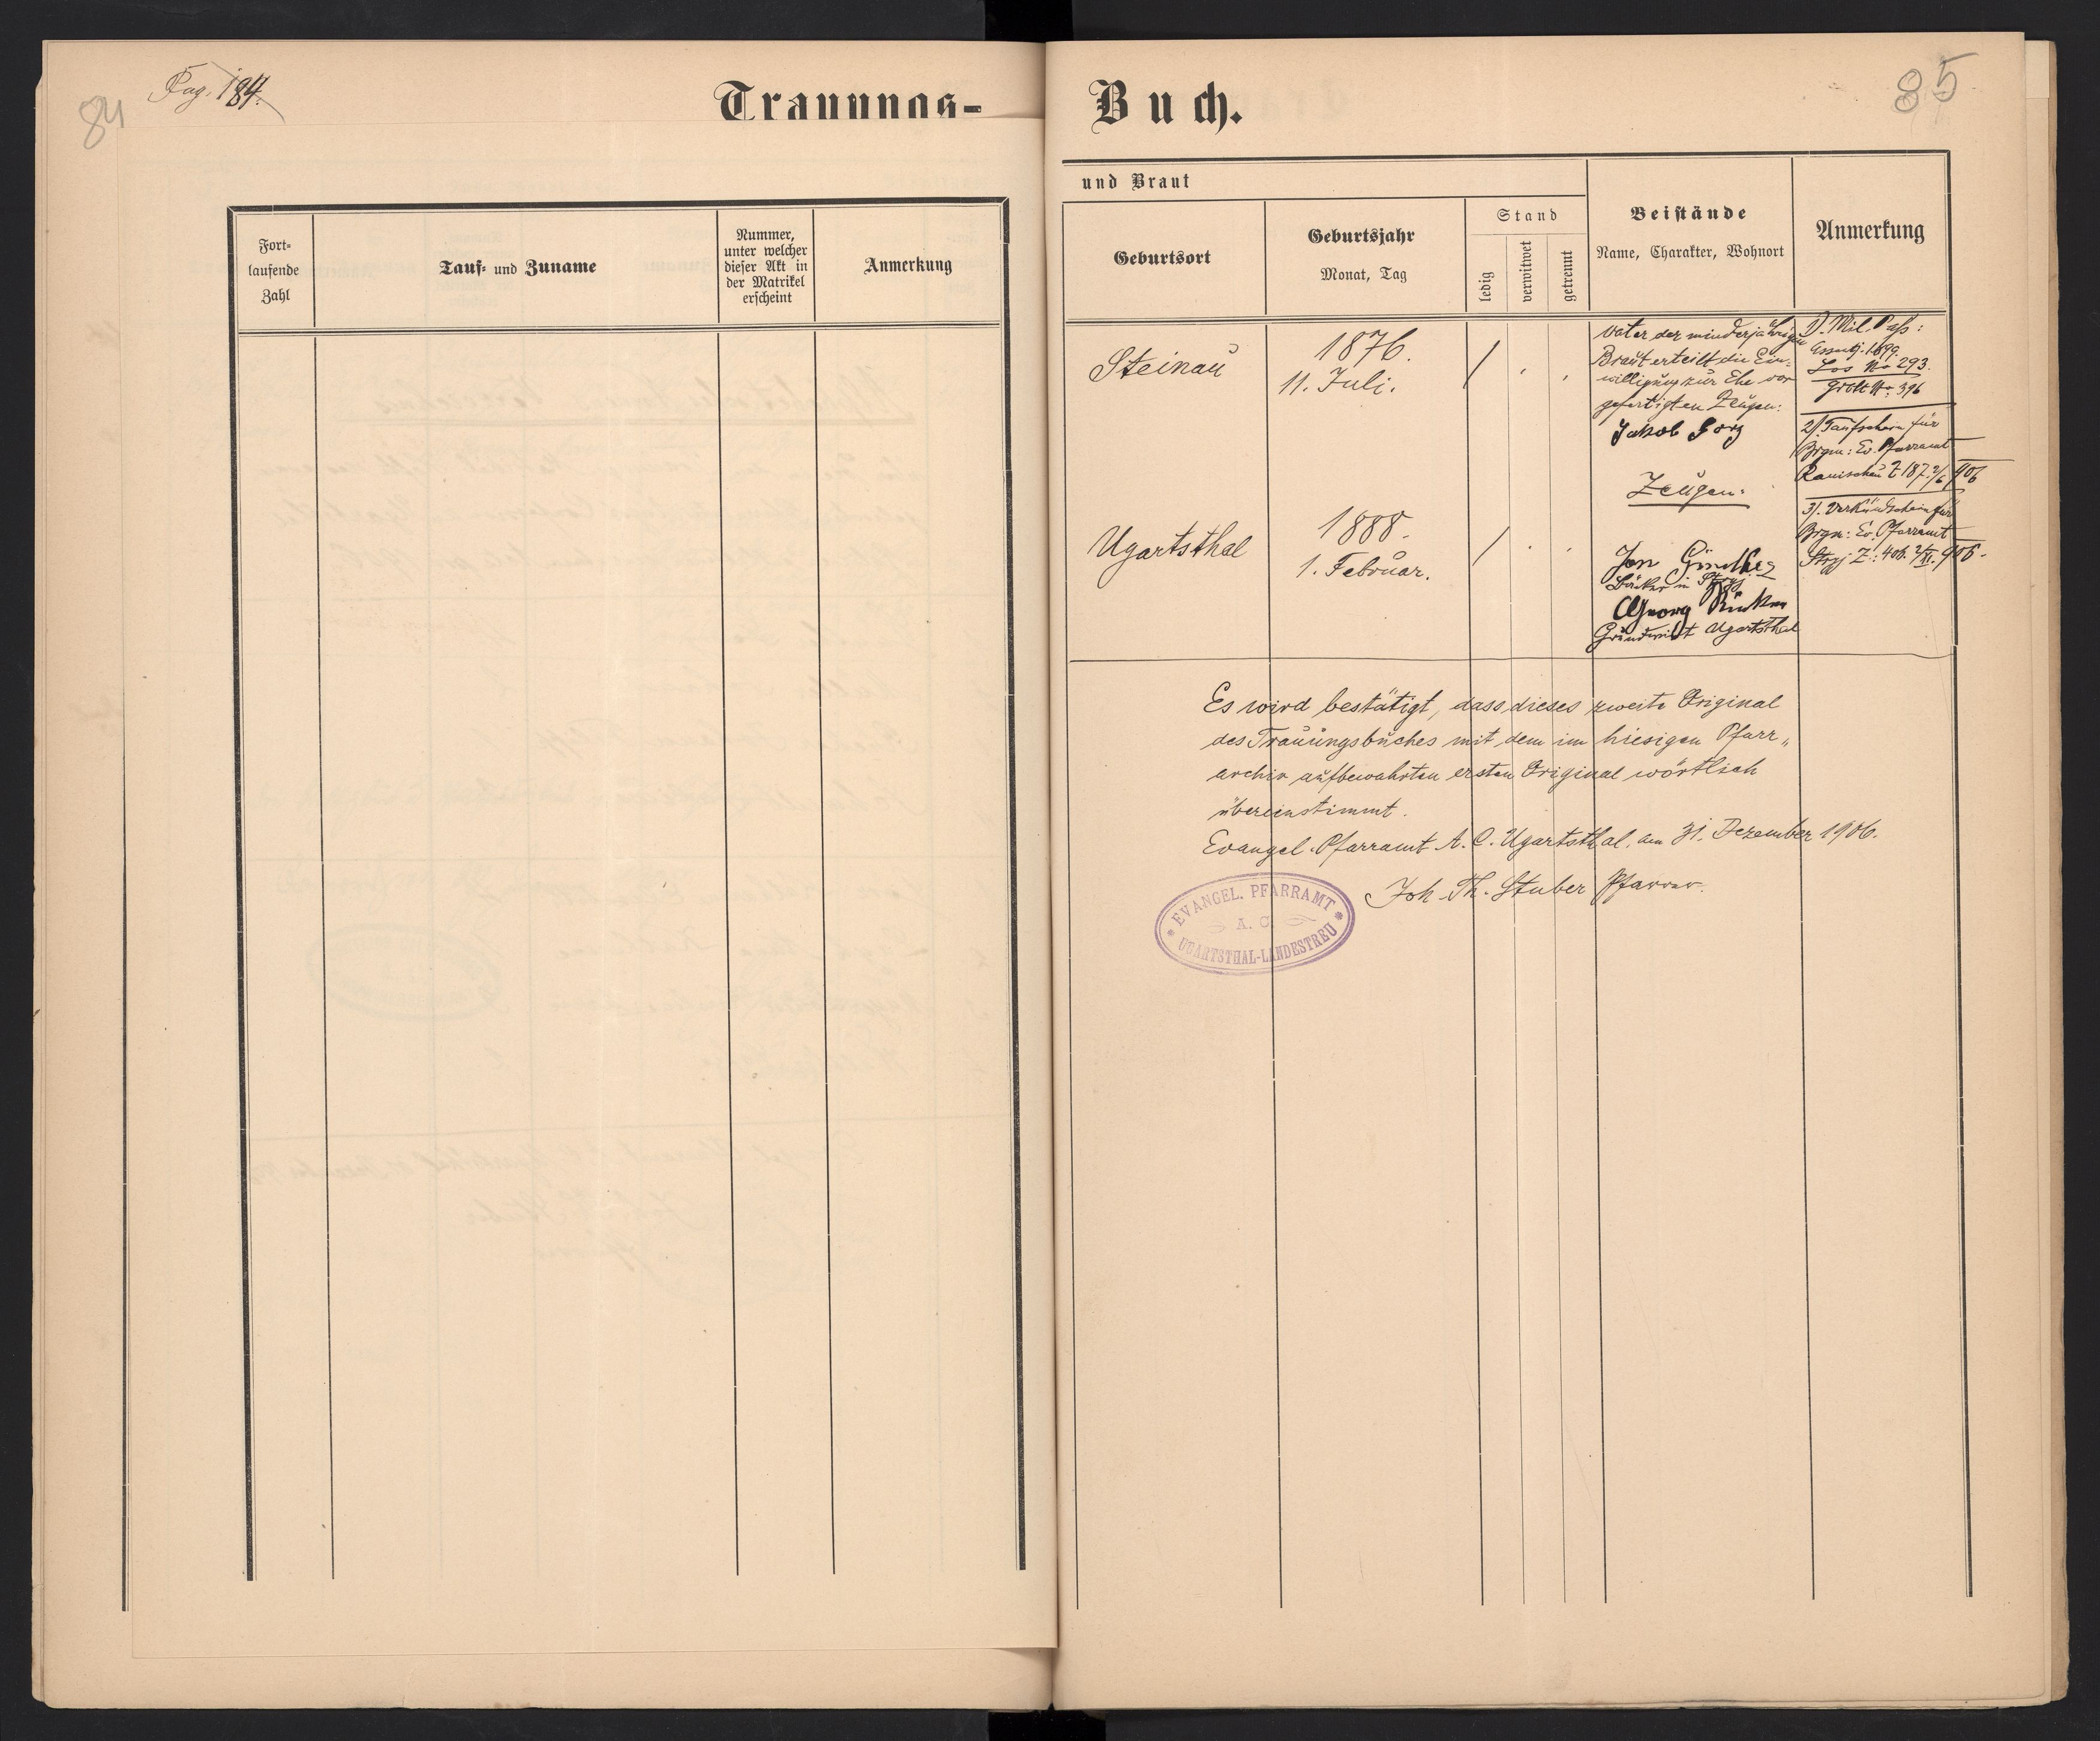 84
Pag. 184.
Trauungs-
Fort-
laufende
Zahl
Tauf- und Zuname
Nummer,
unter welcher
dieser Akt in
der Matrikel
erscheint
Anmerkung
85
Buch.
und Braut
Geburtsort
Geburtsjahr
Monat, Tag
Stand
ledig
verwitwet
getrennt
Beistände
Name, Charakter, Wohnort
Anmerkung
Steinau
1876.
11. Juli.
Vater der minderjährigen
Braut erteilt die Ein-
willigung zur Ehe vor
gefertigten Zeugen:
Jakob
Zeugen:
1). Mil. Paß:
1899.
Los No 293.
No: 396
2) Taufschein für
Brgm: Ev. Pfarramt
Z. 187. 2/6 906
3). Verkündschein für
Brgm: Ev. Pfarramt
Stryj Z.: 406. 2/XI. 906.
Ugartsthal
1888.
1. Februar.
Bäcker in Stryj
Georg
Grundwirt Ugartsthal
Es wird bestätigt, dass dieses zweite Original
des Trauungsbuches mit dem im hiesigen Pfarr„
archiv aufbewahrten ersten Original wörtlich
übereinstimmt.
Evangel. Pfarramt A. C. Ugartsthal, am 31. Dezember 1906.
Joh. Th. Stuber Pfarrer.
* EVANGEL. PFARRAMT *
A. C.
UGARTSTHAL-LANDESTREU